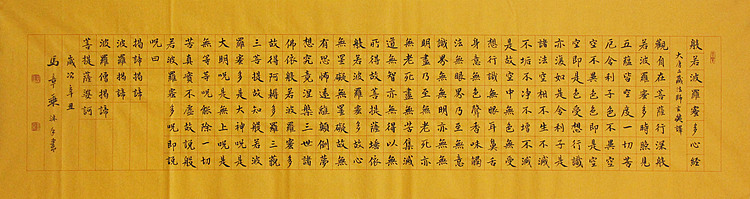 般若波羅蜜多心經
大唐三藏法師玄奘譯
觀自在菩薩行深般
若波羅蜜多時照見
五蘊皆空度一切苦
厄舍利子色不異空
空不異色色即是空
空即是色受想行識
亦復如是舍利子是
諸法空相不生不滅
不垢不淨不增不減
是故空中無色無受
想行識無眼耳鼻舌
身意無色聲香味觸
法無眼界乃至無意
識界無無明亦無無
明盡乃至無老死亦
無老死盡無苦集滅
道無智亦無得以無
所得故菩提薩埵依
般若波羅蜜多故心
無罣礙無罣礙故無
有恐怖遠離顛倒夢
想究竟涅槃三世諸
佛依般若波羅蜜多
故得阿耨多羅三藐
三菩提故知般若波
羅蜜多是大神咒是
大明咒是無上咒是
無等等咒能除一切
苦真實不虛故說般
若波羅蜜多咒即說
咒曰
揭諦揭諦
波羅揭諦
波羅僧揭諦
菩提薩婆訶
歲次辛丑
馬 沐手書